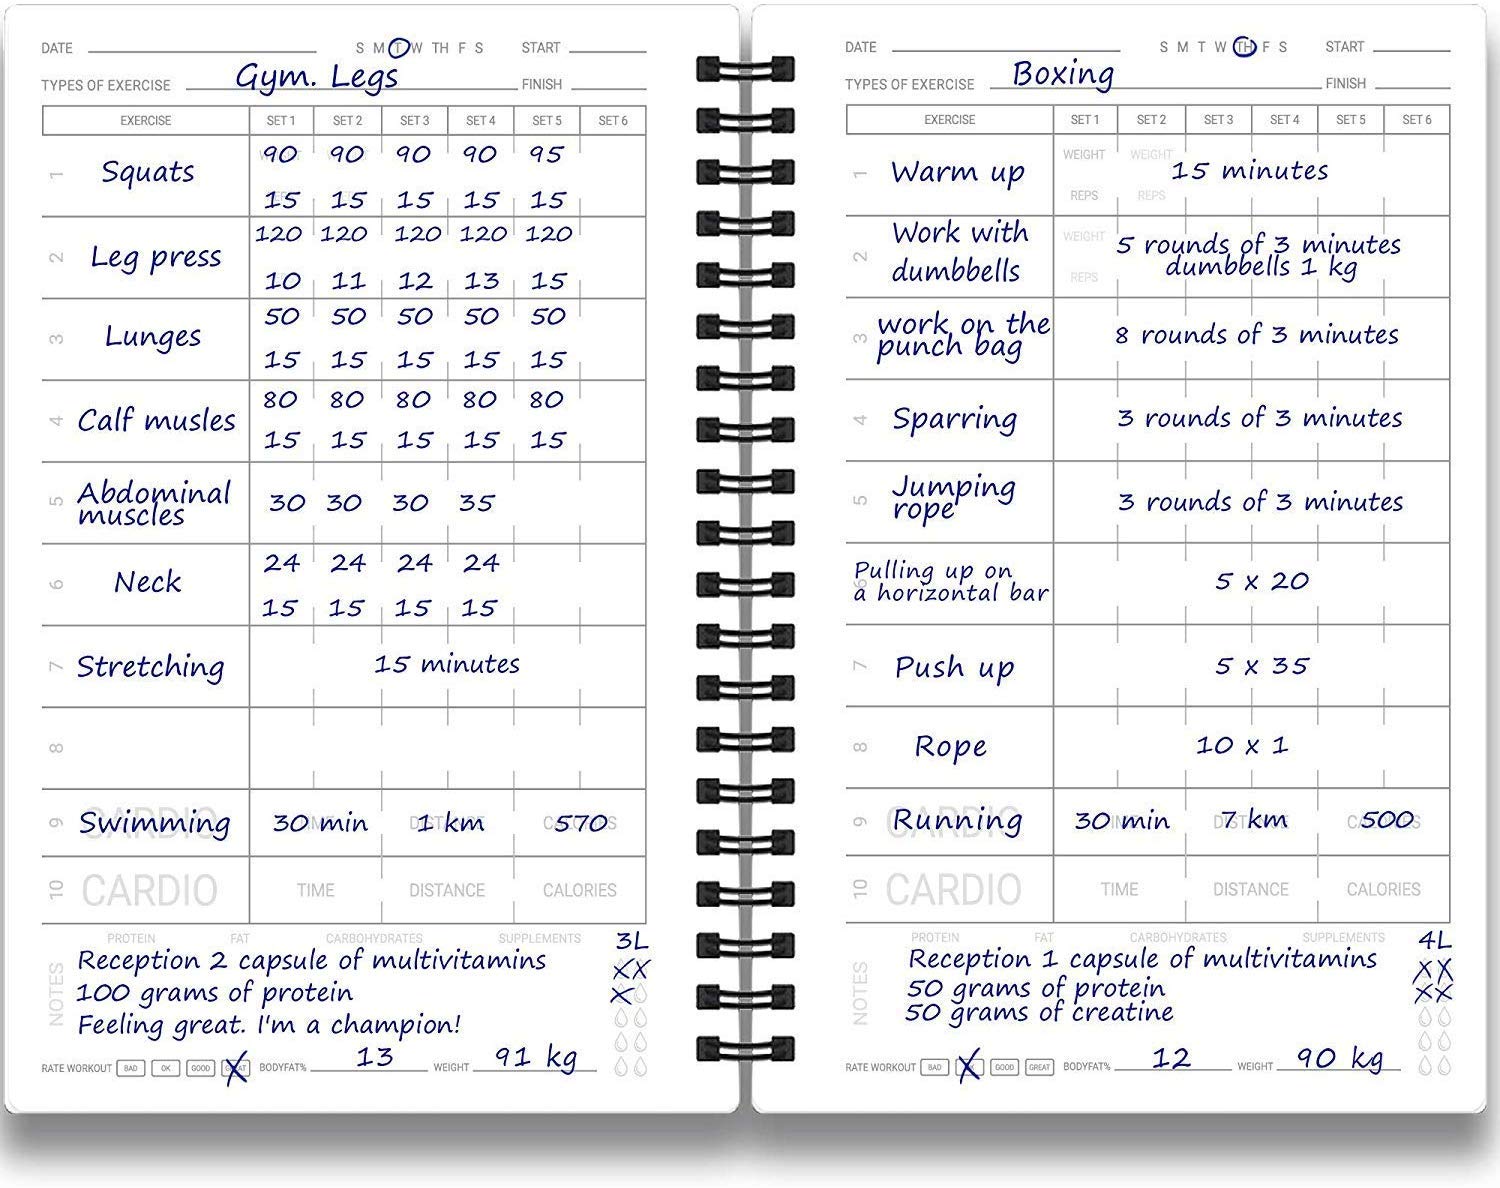 DATE S M T W TH F S START
TYPES OF EXERCISE Gym. Legs FINISH
EXERCISE SET 1 SET 2 SET 3 SET 4 SET 5 SET 6
1 Squats 90 90 90 90 95
15 15 15 15 15
2 Leg press 120 120 120 120 120
10 11 12 13 15
3 Lunges 50 50 50 50 50
15 15 15 15 15
4 Calf musles 80 80 80 80 80
15 15 15 15 15
5 Abdominal
muscles
30 30 30 35
6 Neck 24 24 24 24
15 15 15 15
7 Stretching 15 minutes
8
9 CARDIO Swimming TIME 30 min DISTANCE 1 km CALORIES 570
10 CARDIO TIME DISTANCE CALORIES
PROTEIN FAT CARBOHYDRATES SUPPLEMENTS 3L
NOTES
Reception 2 capsule of multivitamins XX
100 grams of protein X
Feeling great. I'm a champion!
RATE WORKOUT BAD OK GOOD GREAT BODYFAT% 13 WEIGHT 91 kg
DATE S M T W TH F S START
TYPES OF EXERCISE Boxing FINISH
EXERCISE SET 1 SET 2 SET 3 SET 4 SET 5 SET 6
1 Warm up WEIGHT WEIGHT 15 minutes
REPS REPS
2 Work with
dumbbells
WEIGHT 5 rounds of 3 minutes
dumbbells 1 kg
REPS
3 work on the
punch bag
8 rounds of 3 minutes
4 Sparring 3 rounds of 3 minutes
5 Jumping
rope
3 rounds of 3 minutes
6 Pulling up on
a horizontal bar
5 x 20
7 Push up 5 x 35
8 Rope 10 x 1
9 CARDIO Running TIME 30 min DISTANCE 7 km CALORIES 500
10 CARDIO TIME DISTANCE CALORIES
PROTEIN FAT CARBOHYDRATES SUPPLEMENTS 4L
NOTES
Reception 1 capsule of multivitamins XX
50 grams of protein XX
50 grams of creatine
RATE WORKOUT BAD GOOD GREAT BODYFAT% 12 WEIGHT 90 kg